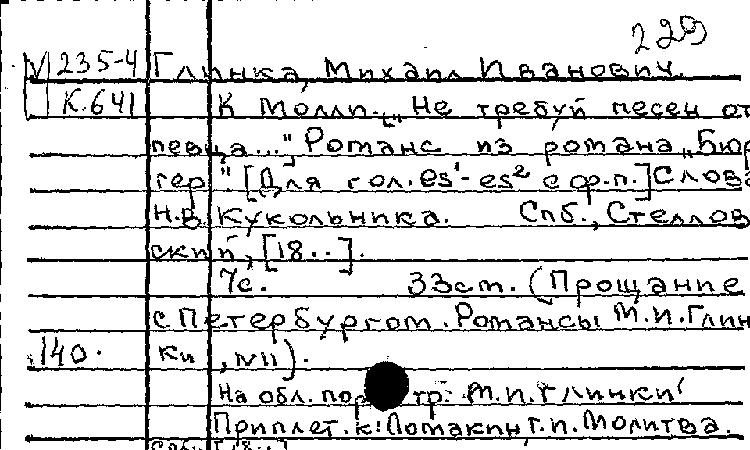 229
М 235-4 Глинка, Михаил Иванович.
К.641 К Молли. „Не требуй песен от
певца..." Романс из романа „Бюр
гер". [Для гол. es¹-es² с ф.п.] Слова
Н.В. Кукольника. Спб., Стеллов
ский, [18..].
7с. 33см. (Прощание
с Петербургом. Романсы М.И. Глин
140. ки, №11).
На обл. портр. М.И. Глинки
Приплет. к: Потакин, Г.п. Молитва.